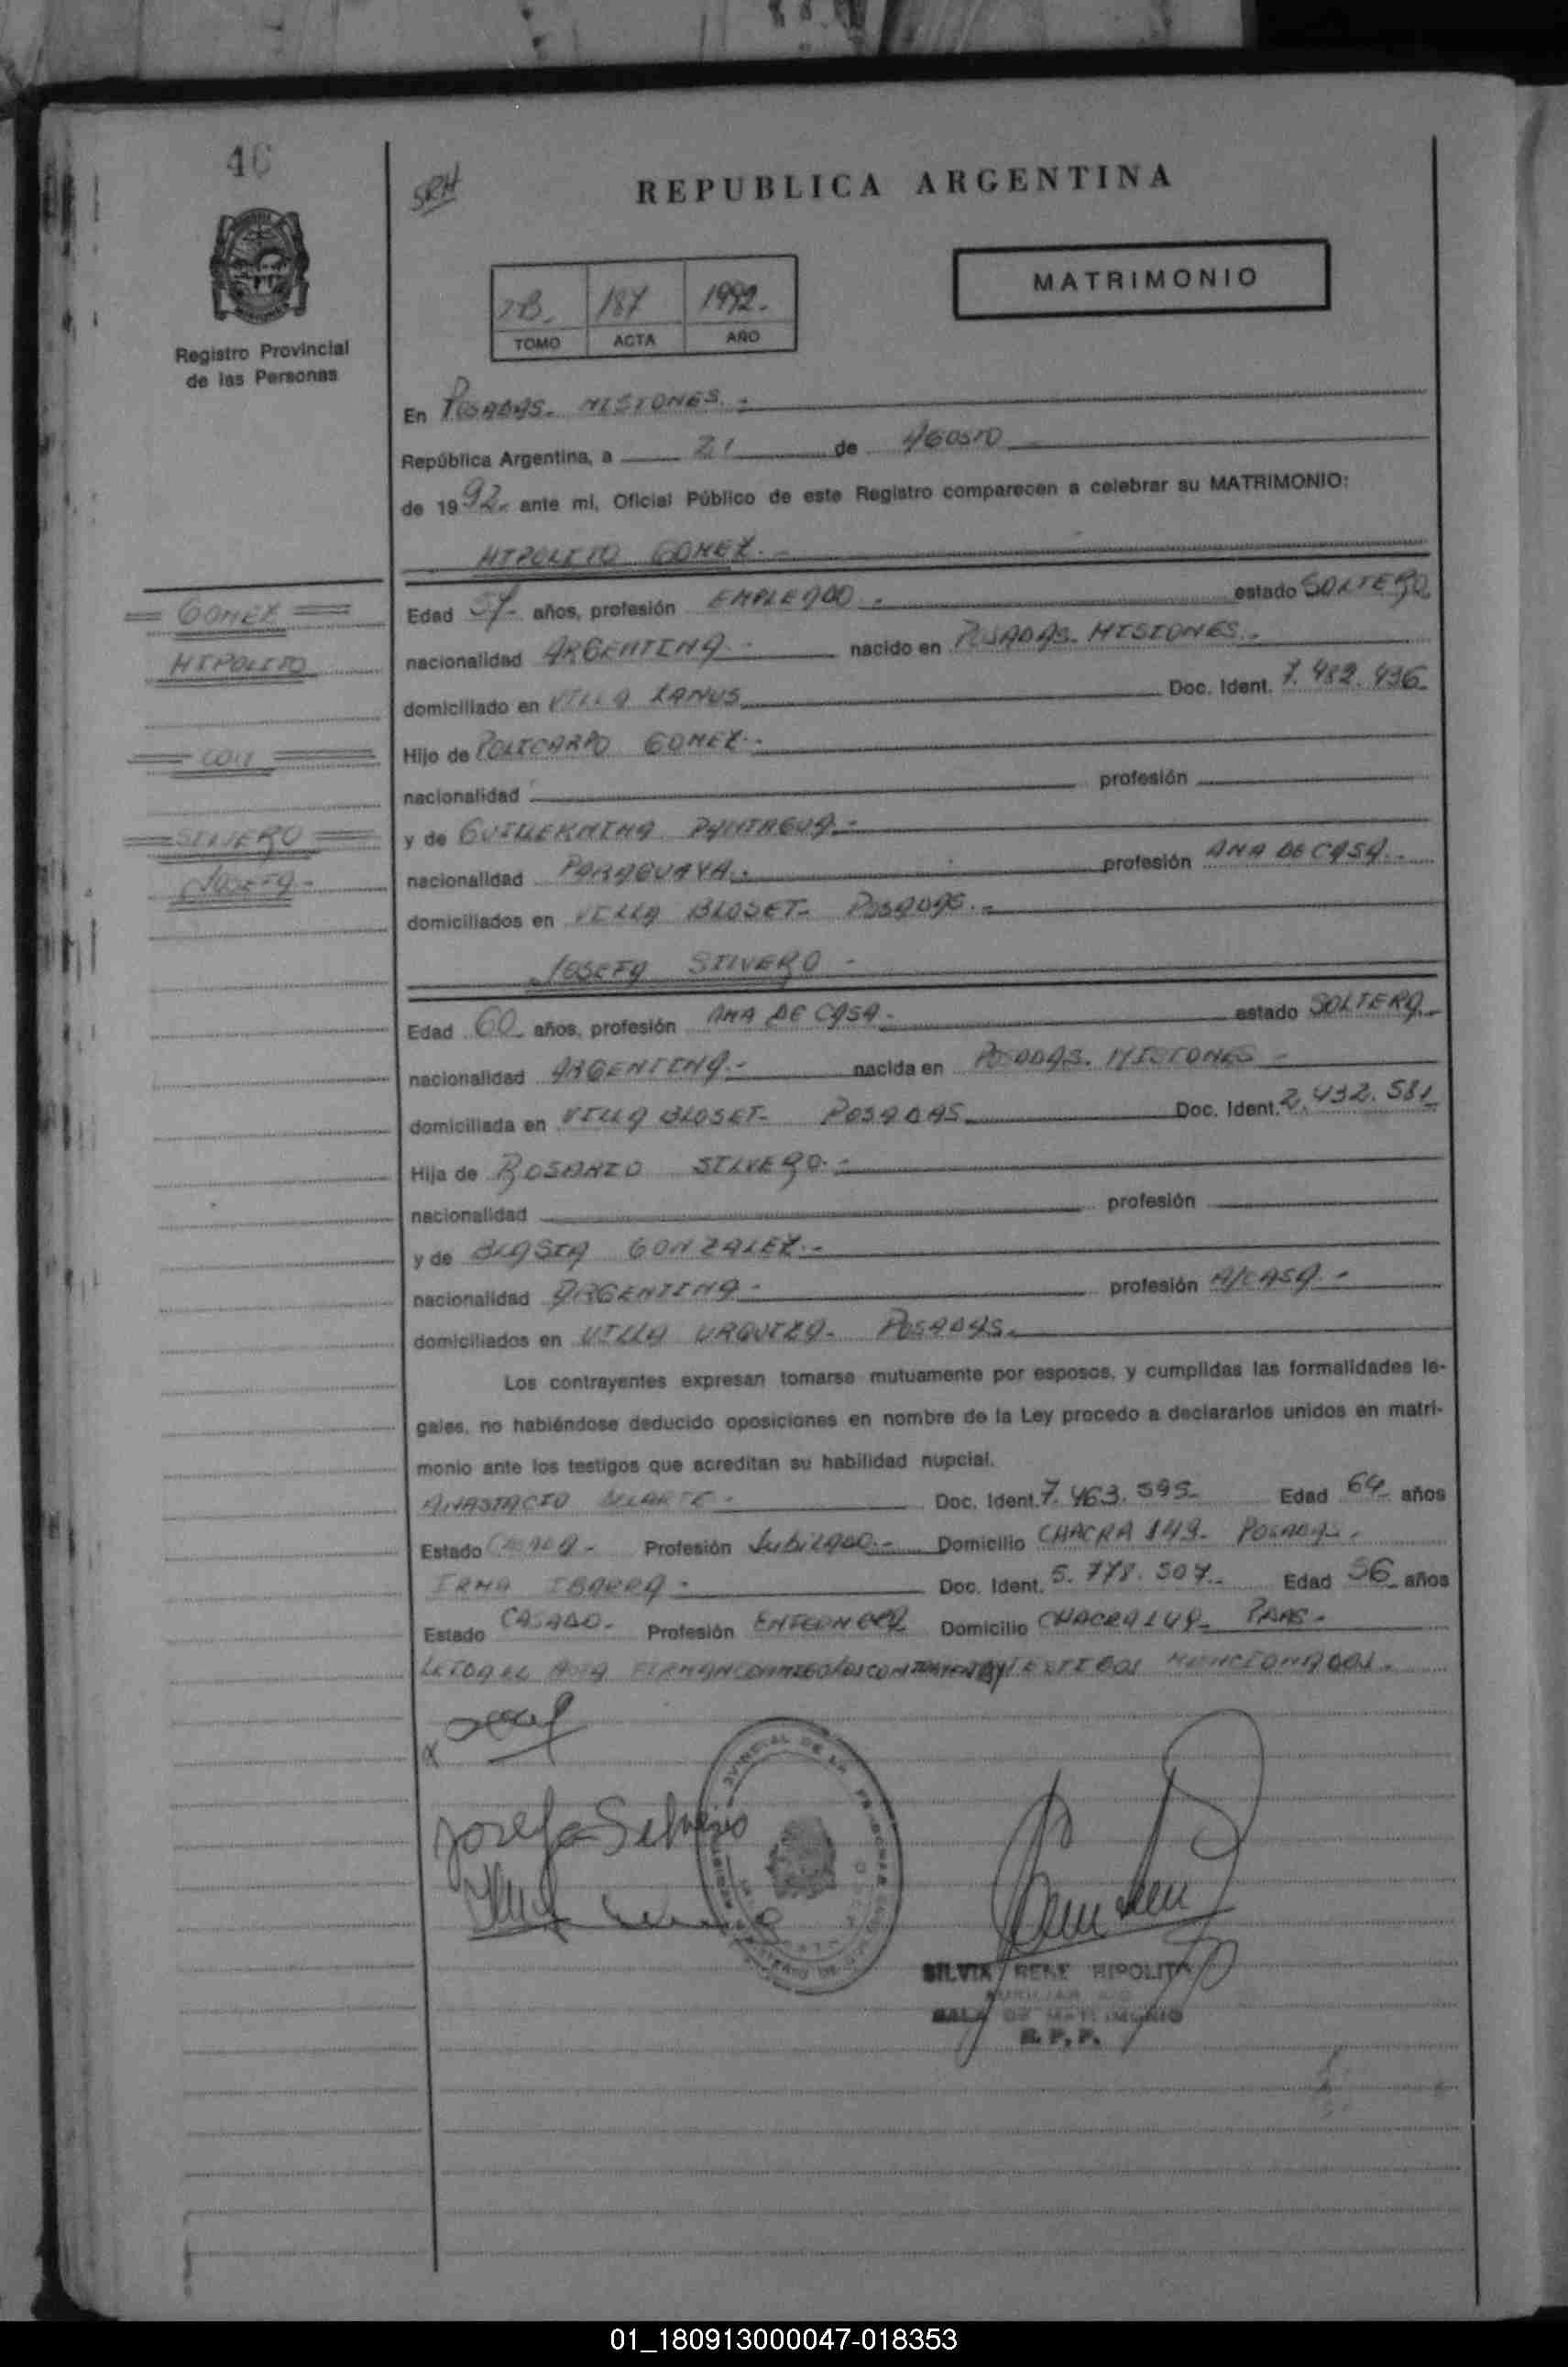 46
SRH
REPUBLICA ARGENTINA
MATRIMONIO
187 1992.-
TOMO ACTA AÑO
Registro Provincial
de las Personas
En POSADAS.- MISIONES.-
República Argentina, a 21 de AGOSTO
de 1992.- ante mi, Oficial Público de este Registro comparecen a celebrar su MATRIMONIO:
HIPOLITO GOMEZ.-
= GOMEZ =
HIPOLITO
= CON =
= SILVERO =
JOSEFA.-
Edad 57- años, profesión EMPLEADO.- estado SOLTERO
nacionalidad ARGENTINA.- nacido en POSADAS- MISIONES.-
domiciliado en VILLA LANUS Doc. Ident. 7.482.496
Hijo de POLICARPO GOMEZ.-
nacionalidad profesión
y de GUILLERMINA
nacionalidad PARAGUAYA.- profesión AMA DE CASA.-
domiciliados en VILLA BLOSET- POSADAS.-
JOSEFA SILVERO -
Edad 60 años, profesión AMA DE CASA.- estado SOLTERA.-
nacionalidad ARGENTINA.- nacida en POSADAS. MISIONES -
domiciliada en VILLA BLOSET- POSADAS Doc. Ident. 2.432.581
Hija de ROSARIO SILVERO.-
nacionalidad profesión
y de BLASIA GONZALEZ.-
nacionalidad ARGENTINA - profesión A/CASA.-
domiciliados en VILLA URQUIZA- POSADAS.
Los contrayentes expresan tomarse mutuamente por esposos, y cumplidas las formalidades le-
gales, no habiéndose deducido oposiciones en nombre de la Ley procedo a declararlos unidos en matri-
monio ante los testigos que acreditan su habilidad nupcial.
ANASTACIO Doc. Ident. 7.463.595- Edad 64 años
Estado Profesión Jubilado.- Domicilio CHACRA 149- POSADAS.
IRMA IBARRA - Doc. Ident. 5.778.507- Edad 56 años
Estado CASADO- Profesión Domicilio CHACRA 149- PDAS-
LEIDA EL ACTA FIRMAN CONMIGO LOS CONTRAYENTES Y TESTIGOS MENCIONADOS.
Josefa Silvero
SILVIA RENE HIPOLITA
SALA DE MATRIMONIO
R. P. P.
01_180913000047-018353